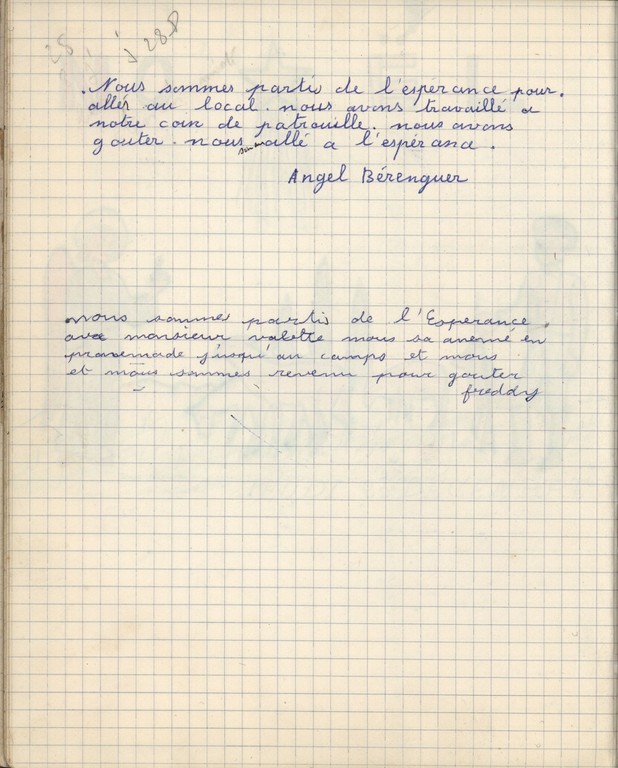 28
J 288
. Nous sommes partis de l'esperance pour.
allés au local. nous avons travaillé a
notre coin de patrouille. nous avons
gouter. nous sommes allé a l'espérance.
Angel Bérenguer
nous sommes partis de l'Esperance,
avec monsieur valette nous sa amené en
promenade j'usqu'au camps et nous
et nous sommes revenu pour gouter
freddy